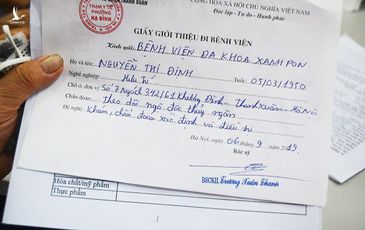 CỘNG HÒA XÃ HỘI CHỦ NGHĨA VIỆT NAM
Độc lập - Tự do - Hạnh phúc
TRẠM Y TẾ
PHƯỜNG
HẠ ĐÌNH
GIẤY GIỚI THIỆU ĐI BỆNH VIỆN
Kính gửi: BỆNH VIỆN ĐA KHOA XANH PÔN
Họ và tên: NGUYỄN THỊ ĐÌNH 05/03/1950
Nghề nghiệp: Hưu trí
Chỗ ở, đơn vị: Số 7 Ngách 342/61 Khương Đình - Thanh Xuân - Hà Nội
Chẩn đoán: Theo dõi ngộ độc thủy ngân
Đề nghị: Khám, chẩn đoán xác định và điều trị
Hà Nội, ngày 06 tháng 9 năm 2019
Bác sỹ
BSCKII. Trương Xuân Thanh
Hóa chất/mỹ phẩm
Thực phẩm